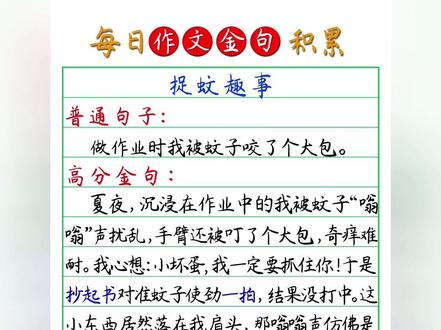 每日作文金句积累
捉蚊趣事
普通句子：
做作业时我被蚊子咬了个大包。
高分金句：
夏夜，沉浸在作业中的我被蚊子“嗡
嗡”声扰乱，手臂还被叮了个大包，奇痒难
耐。我心想：小坏蛋，我一定要抓住你！于是
抄起书对准蚊子使劲一拍，结果没打中。这
小东西居然落在我肩头，那嗡嗡声仿佛是